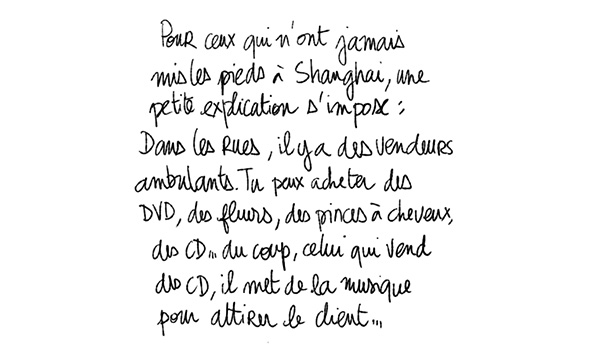 Pour ceux qui n'ont jamais
mis les pieds à Shanghai, une
petite explication s'impose :
Dans les rues, il y a des vendeurs
ambulants. Tu peux acheter des
DVD, des fleurs, des pinces à cheveux,
des CD... du coup, celui qui vend
des CD, il met de la musique
pour attirer le client...